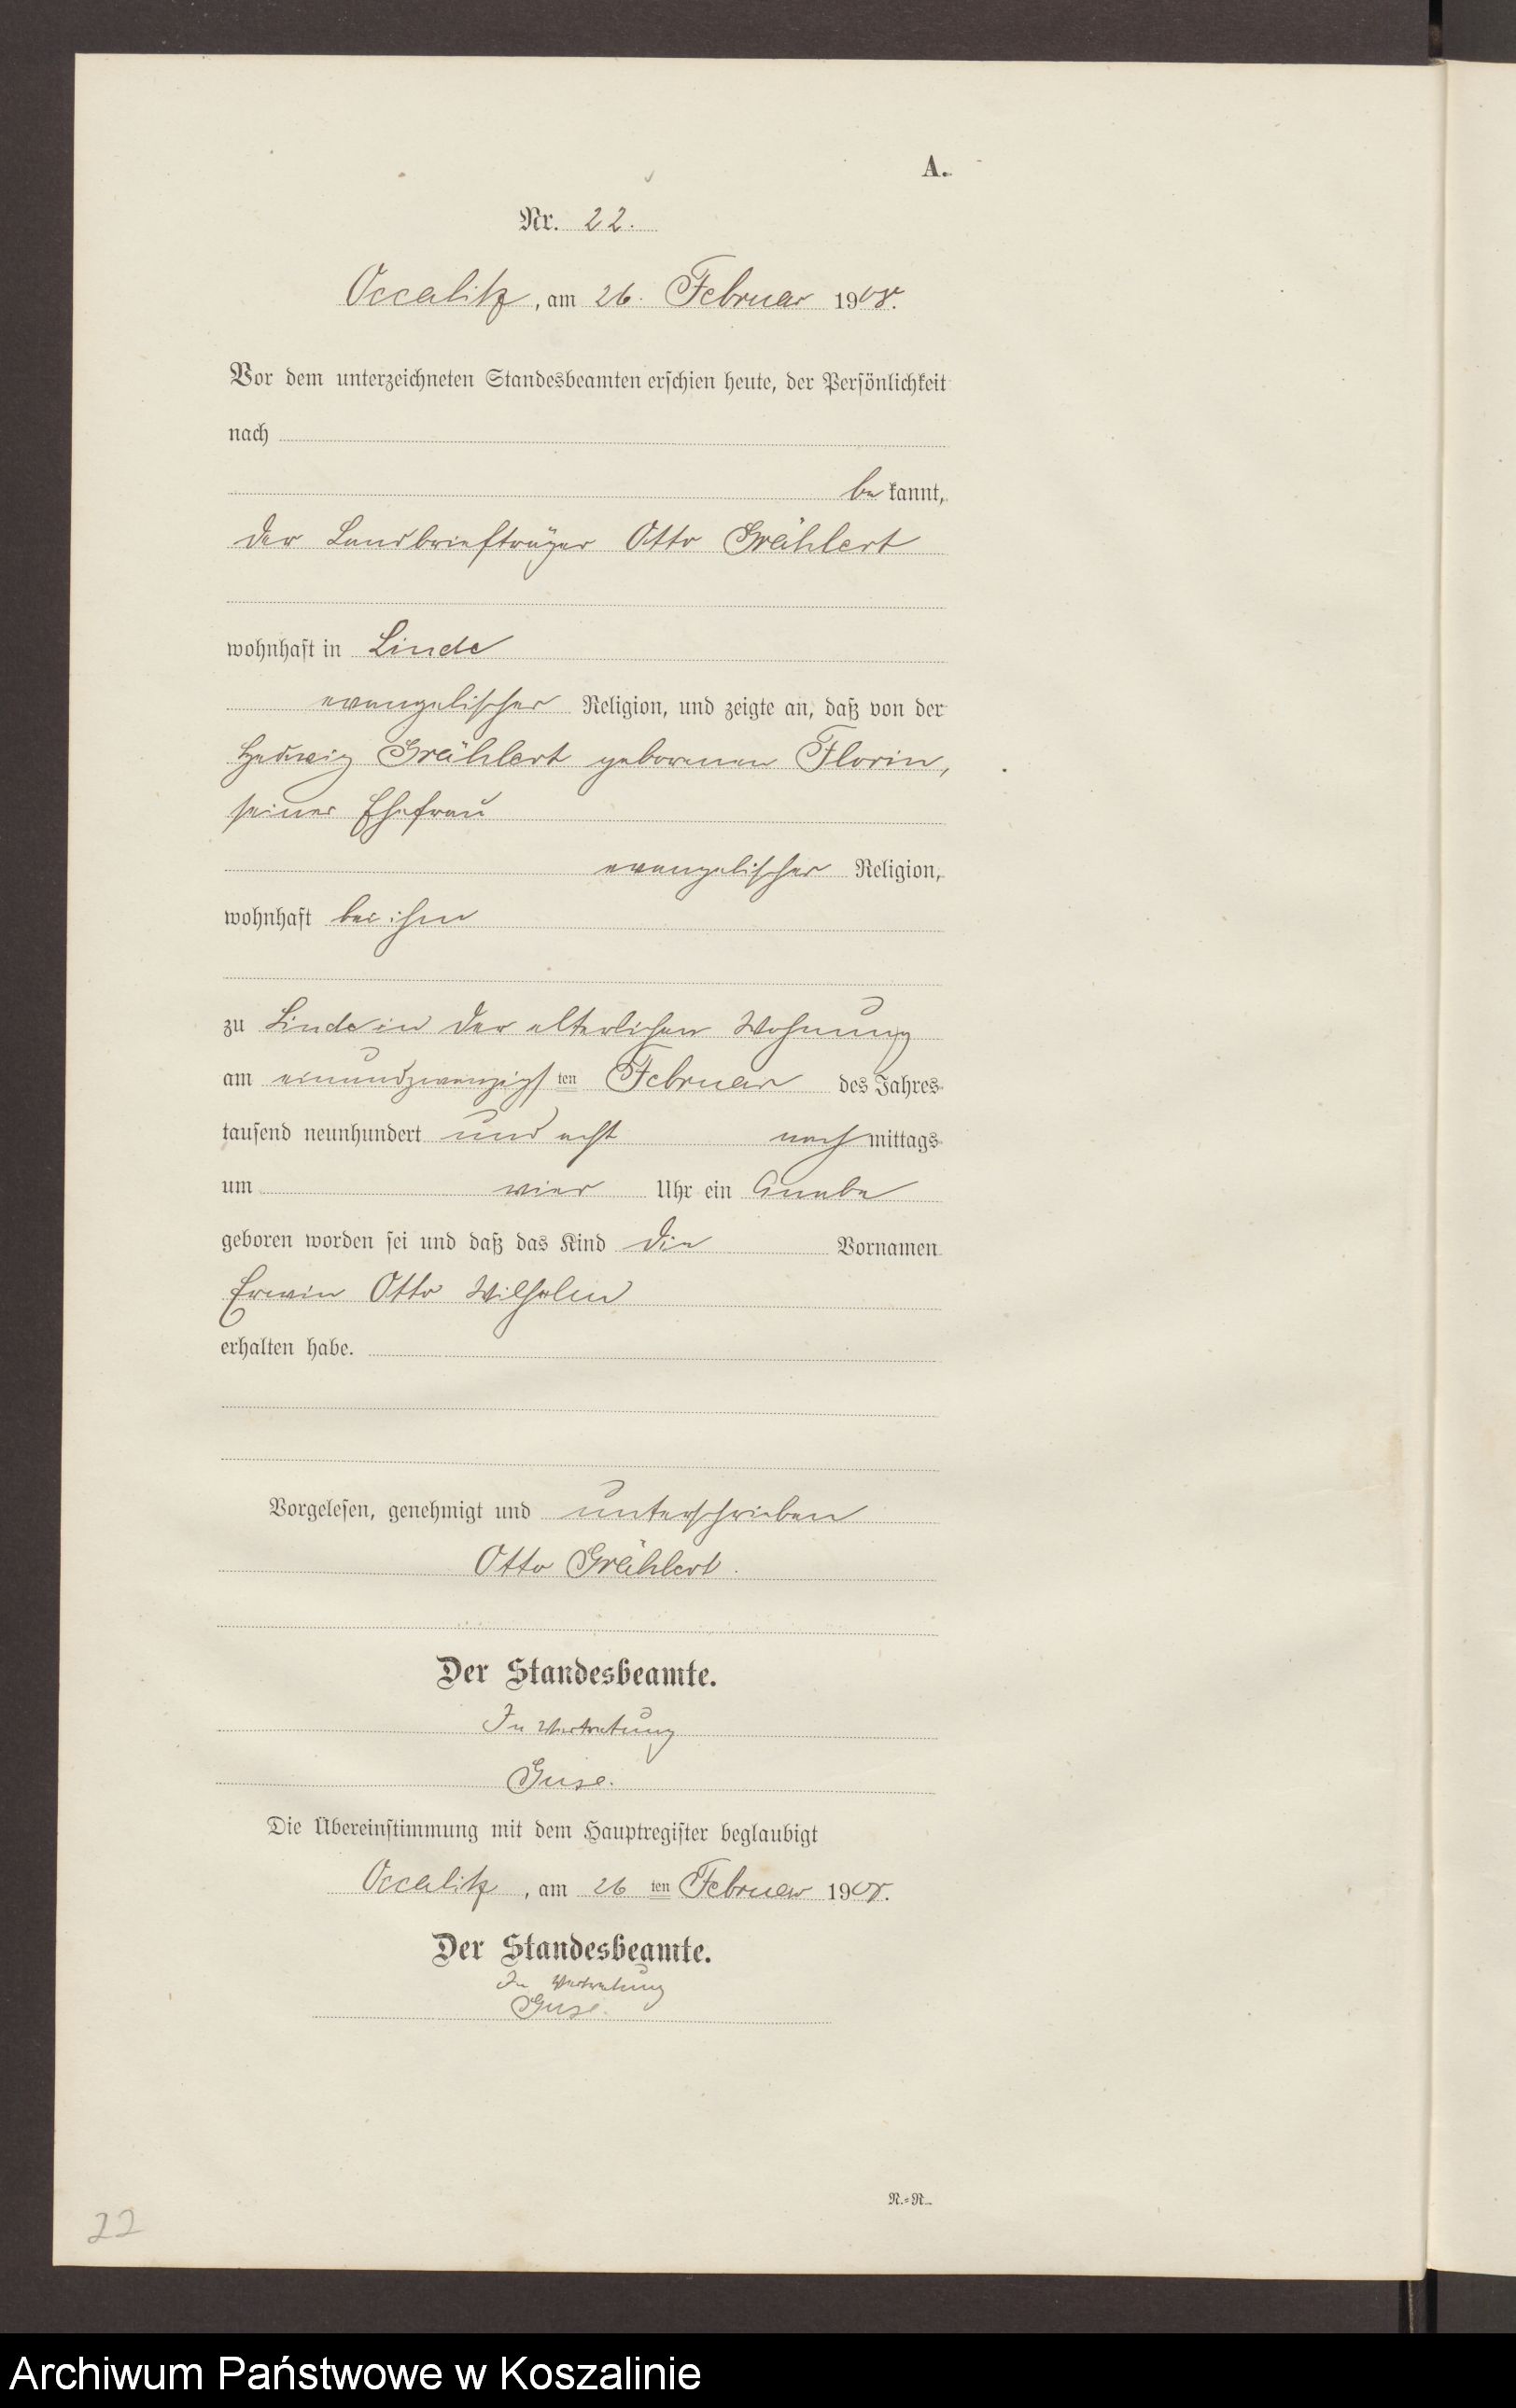 A.
Nr. 22.
Occalitz, am 26. Februar 1908.
Vor dem unterzeichneten Standesbeamten erschien heute, der Persönlichkeit
nach
be kannt,
der Landbriefträger Otto Grählert
wohnhaft in Linde
evangelischer Religion, und zeigte an, daß von der
Hedwig Grählert geborenen Florin,
seiner Ehefrau
evangelischer Religion,
wohnhaft bei ihm
zu Linde in der elterlichen Wohnung
am einundzwanzigsten Februar des Jahres
tausend neunhundert und acht nach mittags
um vier Uhr ein Knabe
geboren worden sei und daß das Kind die Vornamen
Erwin Otto Wilhelm
erhalten habe.
Vorgelesen, genehmigt und unterschrieben
Otto Grählert.
Der Standesbeamte.
In Vertretung
Guse.
Die Übereinstimmung mit dem Hauptregister beglaubigt
Occalitz, am 26 ten Februar 1908.
Der Standesbeamte.
In Vertretung
Guse.
N.=R.
22
Archiwum Państwowe w Koszalinie